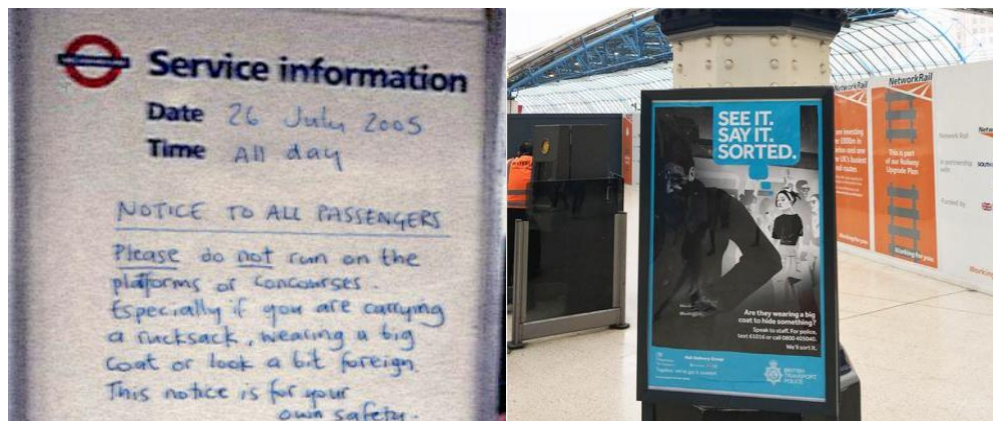 Service information
Date 26 July 2005
Time All day
NOTICE TO ALL PASSENGERS
Please do not run on the
platforms or concourses.
Especially if you are carrying
a rucksack, wearing a big
coat or look a bit foreign.
This notice is for your
own safety.
SEE IT.
SAY IT.
SORTED.
Are they wearing a big
coat to hide something?
Speak to staff. For police,
text 61016 or call 0800 405040.
We'll sort it.
Rail Delivery Group
BRITISH
TRANSPORT
POLICE
NetworkRail
investing
Working for you
NetworkRail
This is part
of our Railway
Upgrade Plan
Working for you
Network Rail
In partnership
with
Funded by
Working